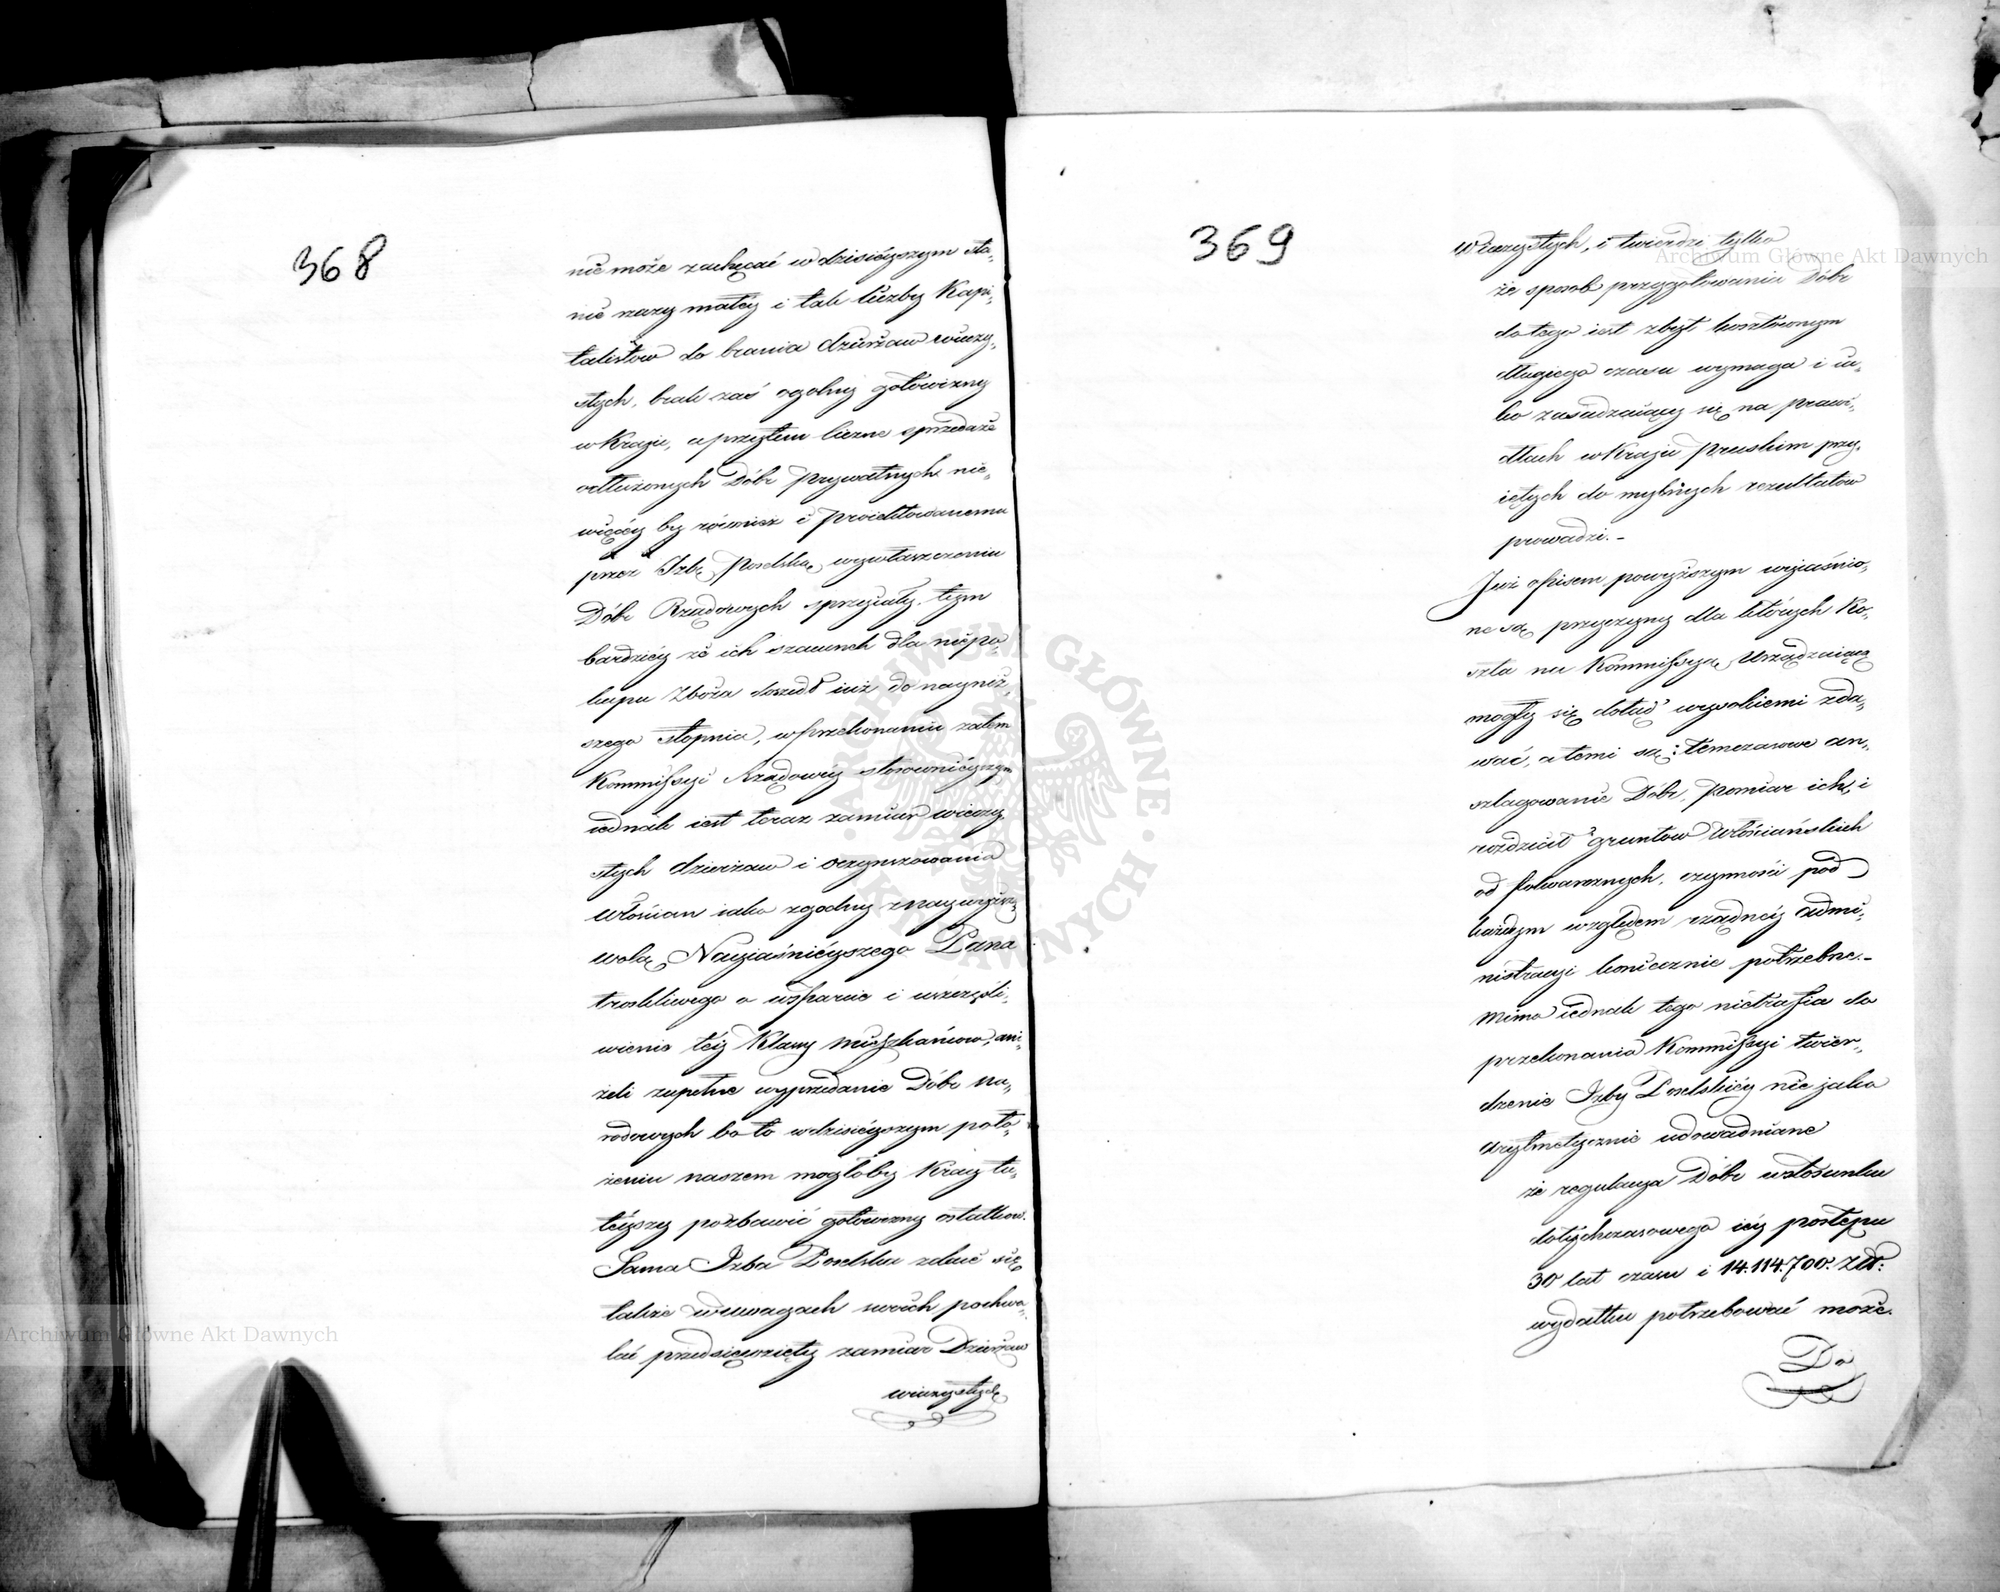 368
nie może zachęcać w dzisieyszym sta,
nie rzeczy małey i tak liczby Kapi,
talistow do brania dzierżaw wieczy,
stych, brak zaś ogolny gotowizny
w Kraju, a przytem liczne sprzedaże
odłużonych Dóbr prywatnych nie,
więcey by również i proiektowanemu
przez Izbę Poselską wywłaszczeniu
Dóbr Rządowych sprzyiały, tym
bardziey że ich szacunek dla niepo,
kupu Zboża doszedł iuż do nayniż,
szego stopnia, w przekonaniu zatem
Kommissyi Rządowey stosownieyszym
iednak iest teraz zamiar wieczy,
stych dzierżaw i oczynszowania
Włościan iako zgodny z naywyższą
wolą Nayiaśnieyszego Pana
troskliwego o wsparcie i uszczęśli,
wienie tey Klassy mieszkańcow, ani,
żeli zupełne wyprzedanie Dóbr na,
rodowych bo to w dzisieyszym poło,
żeniu naszem mogłoby Kray tu,
teyszy pozbawić gotowizny ostatkow.
Sama Izba Poselska zdaie się
także w uwagach swoich pochwa,
lać przedsięwzięty zamiar Dzierżaw
wieczystych
369
Wieczystych, i twierdzi tylko
że sposob przygotowania Dóbr
do tego iest zbyt kosztownym
długiego czasu wymaga i ia,
ko zasadzaiący się na prawi,
dłach w Kraju pruskim przy,
iętych do mylnych rezultatow
prowadzi. -
Już opisem powyższym wyiaśnio,
ne są przyczyny dla których Ko,
szta na Kommissyą Urządzaiącą
mogły się dotąd wysokiemi zda,
wać, a temi są: tymczasowe an,
szlagowanie Dóbr, pomiar ich, i
rozdział gruntow Włościańskich
od folwarcznych, czynności pod
każdym względem rządney admi,
nistracyi koniecznie potrzebne. -
Mimo iednak tego nietrafia do
przekonania Kommissyi twier,
dzenie Izby Poselskiey nie jako
arytmetycznie udowadniane
że regulacya Dóbr w stosunku
dotychczasowego iey postępu
30 lat czasu i 14.114.700. Złł:
wydatku potrzebować może.
Do
Archiwum Główne Akt Dawnych
Archiwum Główne Akt Dawnych
ARCHIWUM GŁÓWNE AKT DAWNYCH